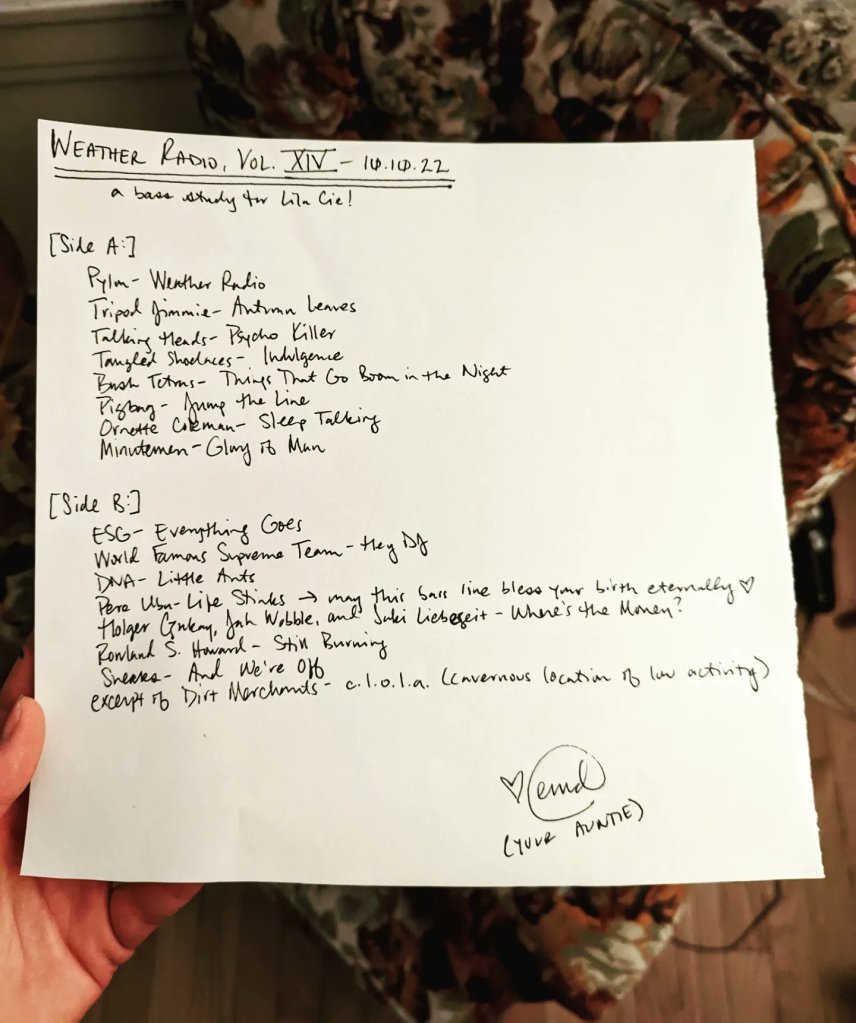 WEATHER RADIO, VOL. XIV - 10.10.22
a bass study for Lila Cie!
[Side A:]
Pylon - Weather Radio
Tripod Jimmie - Autumn Leaves
Talking Heads - Psycho Killer
Tangled Shoelaces - Indulgence
Bush Tetras - Things That Go Boom in the Night
Pigbag - Jump the Line
Ornette Coleman - Sleep Talking
Minutemen - Glory of Man
[Side B:]
ESG - Everything Goes
World Famous Supreme Team - Hey DJ
DNA - Little Ants
Pere Ubu - Life Stinks → may this bass line bless your birth eternally ♡
Holger Czukay, Jah Wobble, and Jaki Liebezeit - Where's the Money?
Rowland S. Howard - Still Burning
Sneaks - And We're Off
excerpt of Dirt Merchants - c.l.o.l.a. (cavernous location of low activity)
♡ emd
(YOUR AUNTIE)